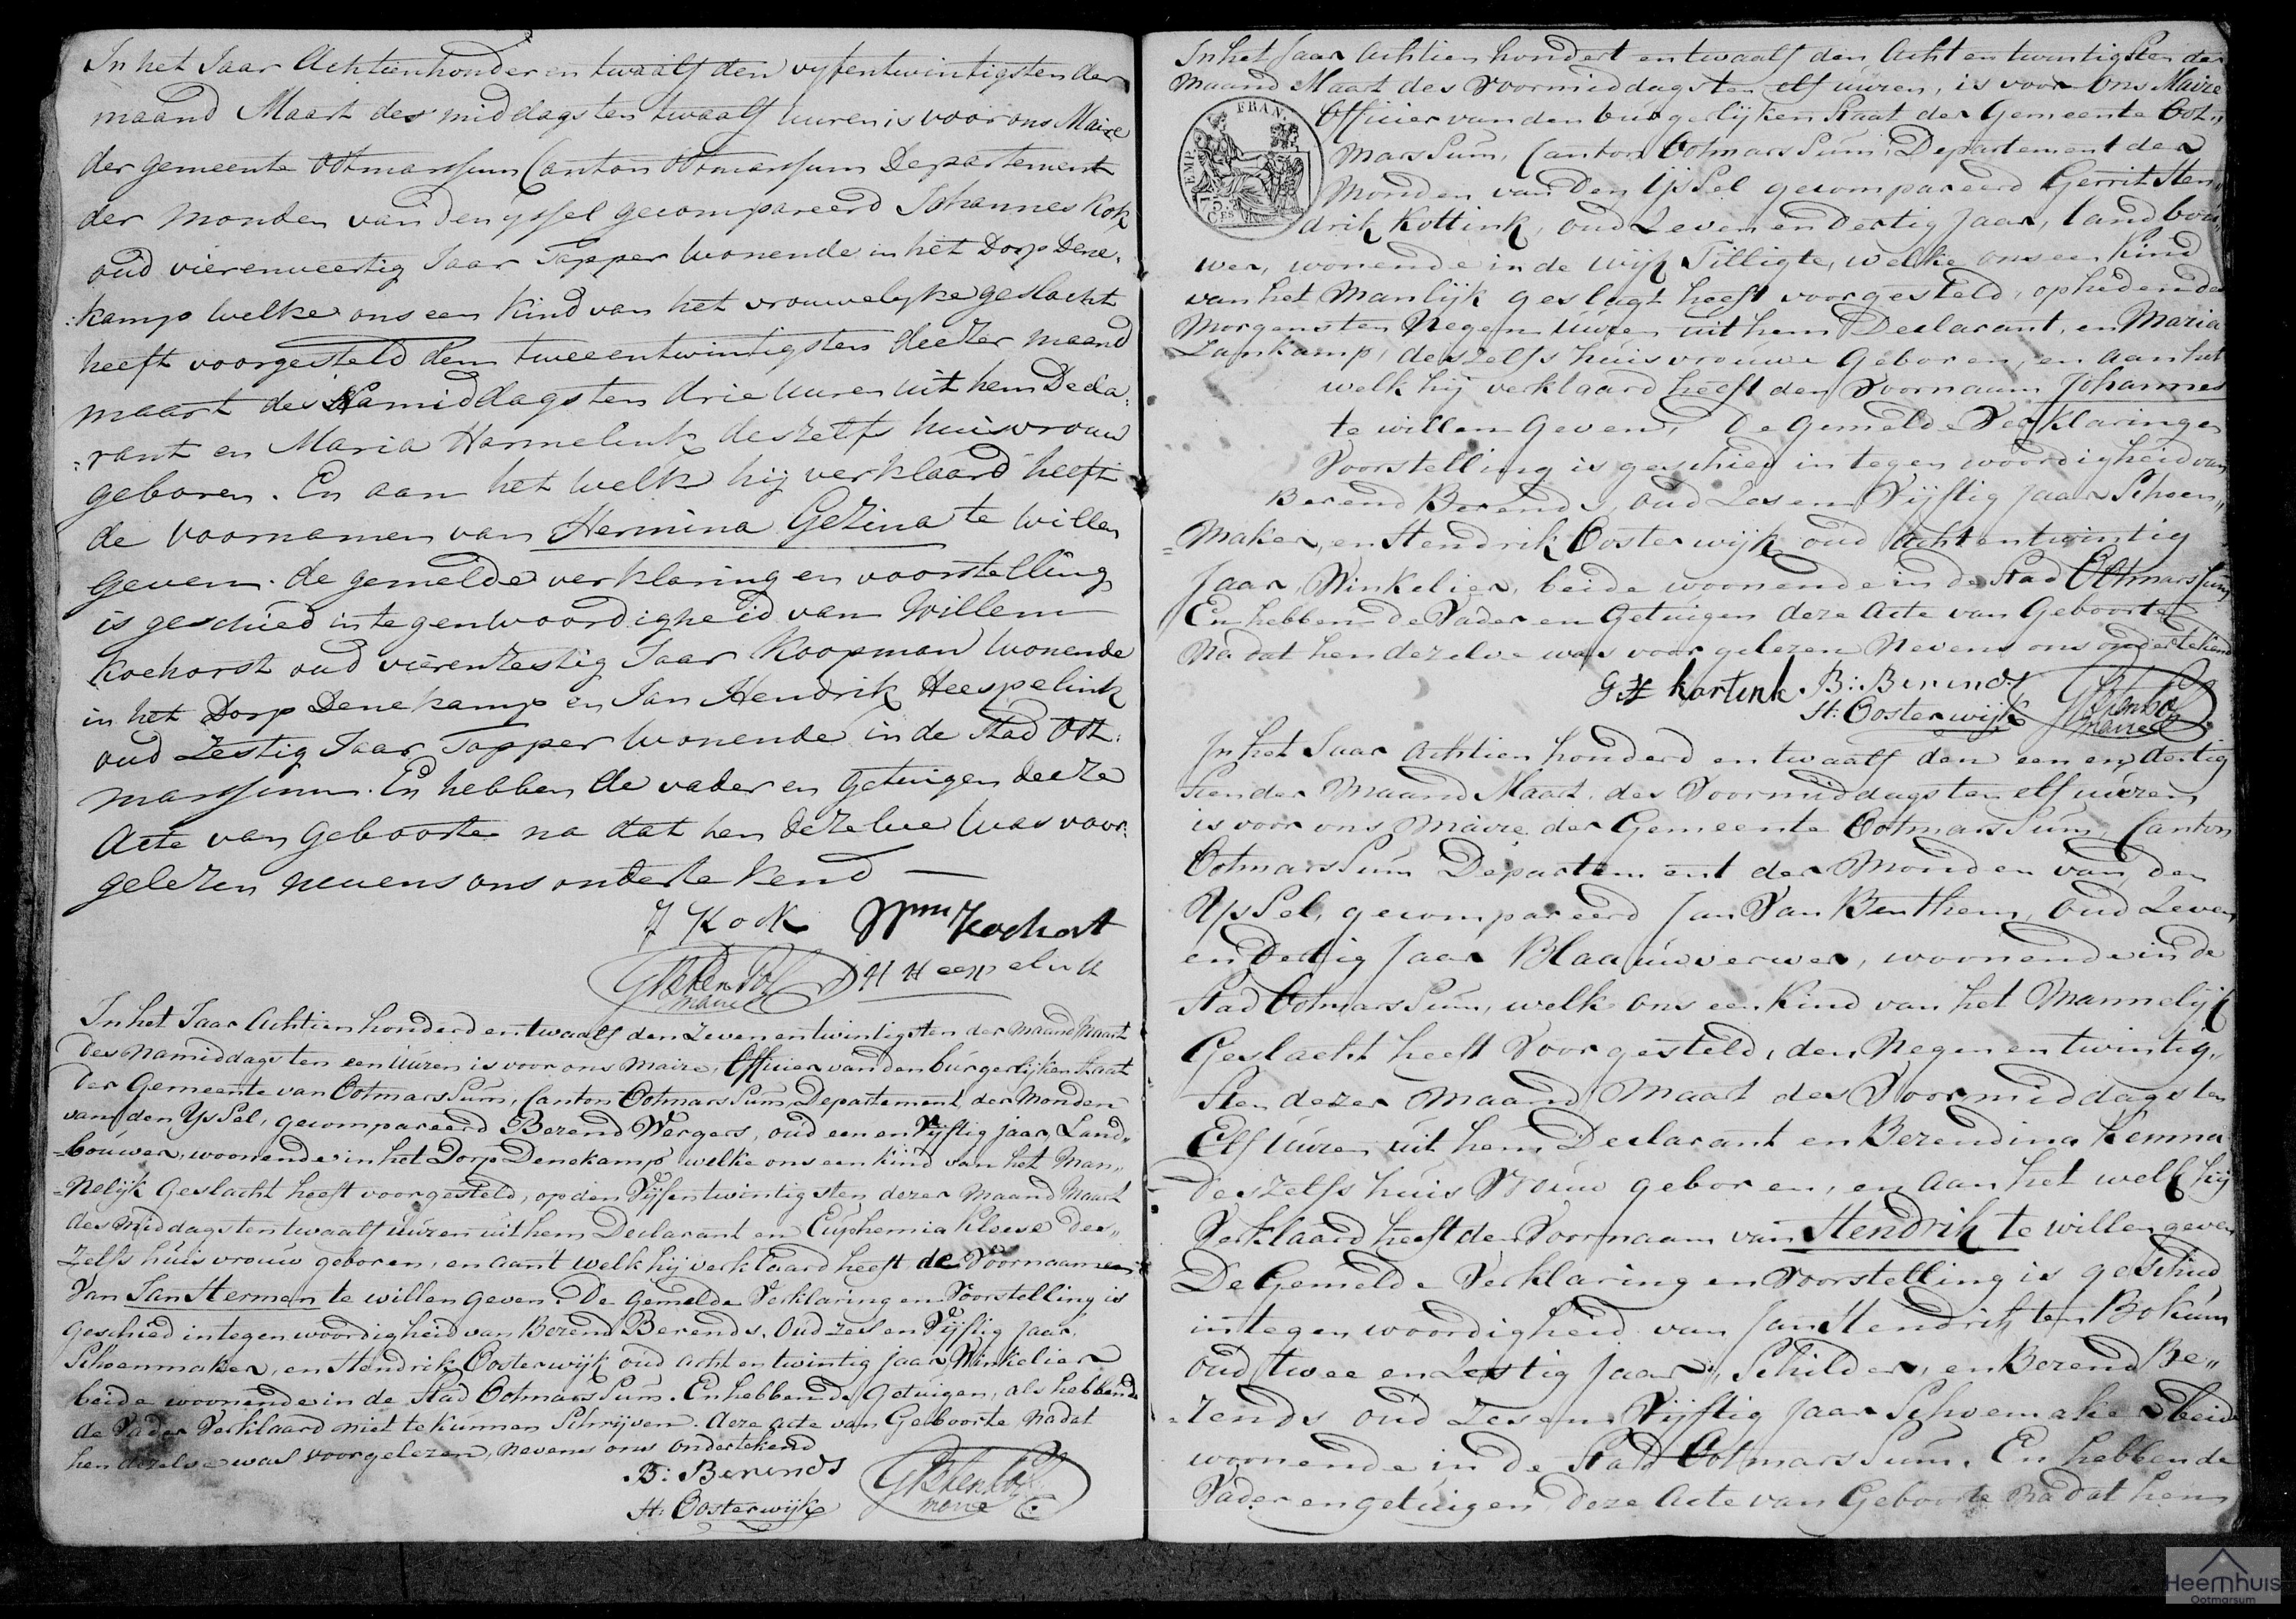 In het Jaar Achtienhonder en twaalf den vyfentwintigsten der
maand Maart des middags ten twaalf uuren is voor ons Maire
der gemeente Ootmarssum Canton Ootmarssum Departement
der Monden van den yssel gecompareerd Johannes Kok
oud vierenveertig Jaar Tapper wonende in het Dorp Dene,
:kamp welke ons een kind van het vrouwelyke geslacht
heeft voorgesteld den tweeentwintigsten deezer maand
maart des Namiddags ten drie uuren uit hem Decla,
:rant en Maria Harmelink deszelfs huisvrouw
geboren. En aan het welk hij verklaard heeft
de voornamen van Hermina Gezina te willen
geven. de gemelde verklaring en voorstelling
is geschied in tegenwoordigheid van Willem
Koehorst oud vierenzestig Jaar Koopman wonende
in het Dorp Denekamp en Jan Hendrik Heespelink
oud zestig Jaar Tapper wonende in de Stad Oot:
marssum. En hebben de vader en getuigen deeze
Acte van geboorte na dat hen dezelve was voor:
gelezen nevens ons ondertekend —
J Kock Wm Koehorst
J H Heespelink
maire
In het Jaar Achtien honderd en twaalf den zeven entwintigsten der maand Maart
des namiddags ten een uuren is voor ons Maire, Officier van den burgerlijken staat
der Gemeente van OotmarsSum, Canton OotmarsSum, Departement der Monden
van den YsSel, gecompareerd Berend Wergers, oud een en Vijftig jaar, Land„
=bouwer, woonende in het Dorp Denekamp welke ons een kind van het Man„
=nelijk Geslacht heeft voorgesteld, op den Vijfentwintigsten dezer Maand Maart
des middags ten twaalf uuren uit hem Declarant en Euphemia Kleise des„
zelfs huisvrouw geboren, en aant welk hij verklaard heeft de Voornaamen
Van Jan Hermen te willen geven. De gemelde Verklaring en Voorstelling is
geschied in tegenwoordigheid van Berend Berends, Oud zes en Vijftig Jaar,
Schoenmaker, en Hendrik Oosterwijk oud acht en twintig jaar Winkelier
beide woonende in de Stad OotmarsSum. En hebben de Getuigen, als hebbende
de Vader Verklaard niet te kunnen Schrijven, deze acte van Geboorte nadat
hen dezelve was voorgelezen, nevens ons ondertekend
B: Berends
H: Oosterwijk
maire
In het Jaar Achtien hondert en twaalf den Acht en twintigsten der
Maand Maart des Voormiddags ten elf uuren, is voor Ons Maire
FRAN.
EMP.
Officier van den burgerlijken Staat der Gemeente Oot„
marsSum, Canton OotmarsSum, Departement der
Monden van den IjsSel gecompareerd Gerrit Hen„
drik Kottink, oud Zeven en Dertig Jaar, landbou„
wer, wonende in de wijk Tilligte, welke ons een kind
van het Manlijk geslagt heeft voorgesteld, op heden des
Morgens ten Negen Uuren uit hem Declarant, en Maria
Lankamp, deszelfs huisvrouwe Geboren, en aan het
welk hij verklaard heeft den Voornaam Johannes
te willen Geven, De gemelde Verklaring en
Voorstelling is geschied in tegenwoordigheid van
Berend Berends, oud Zes en Vijftig Jaar Schoen„
=Maker, en Hendrik Oosterwijk oud acht en twintig
Jaar, Winkelier, beide woonende in de Stad OotmarsSum
En hebben de Vader en Getuigen deze Acte van Geboorte
Na dat hen dezelve was voorgelezen Nevens ons ondertekend
G H kortink B: Berends
H: Oosterwijk
maire
In het Jaar Achtien honderd en twaalf den een en dertig
Sten der Maand Maart, des Voormiddags ten elf uuren
is voor ons Maire der Gemeente OotmarsSum, Canton
OotmarsSum Departement der Monden van den
YsSel, gecompareerd Jan Van Benthem, Oud Zeven
en Dertig Jaar Blaauwverwer, woonende in de
Stad OotmarsSum, welke ons een Kind van het Mannelijk
Geslacht heeft Voorgesteld, den Negen en twintig„
Sten dezer Maand Maart des Voormiddags ten
Elf Uuren uit hem Declarant en Berendina Kemna
deszelfs huis Vrouw geboren, en aan het welk hij
Verklaard heeft den Voornaam van Hendrik te willen geven
De Gemelde Verklaring en Voorstelling is geschied
in tegenwoordigheid van Jan Hendrik ten Bokum
oud twee en Zestig Jaar, Schilder, en Berend Be„
=rends oud Zes en Vijftig Jaar Schoemaker beide
woonende in de Stad OotmarsSum. En hebben de
Vader en getuigen deze Acte van Geboorte Nadat hem
Heemhuis
Ootmarsum